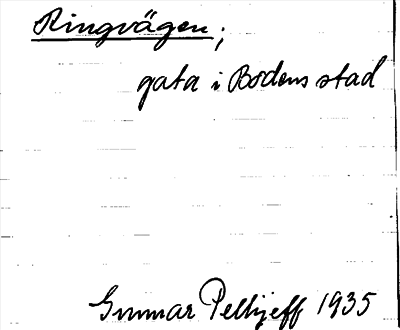 Ringvägen;
gata i Bodens stad
Gunnar Pellijeff 1935